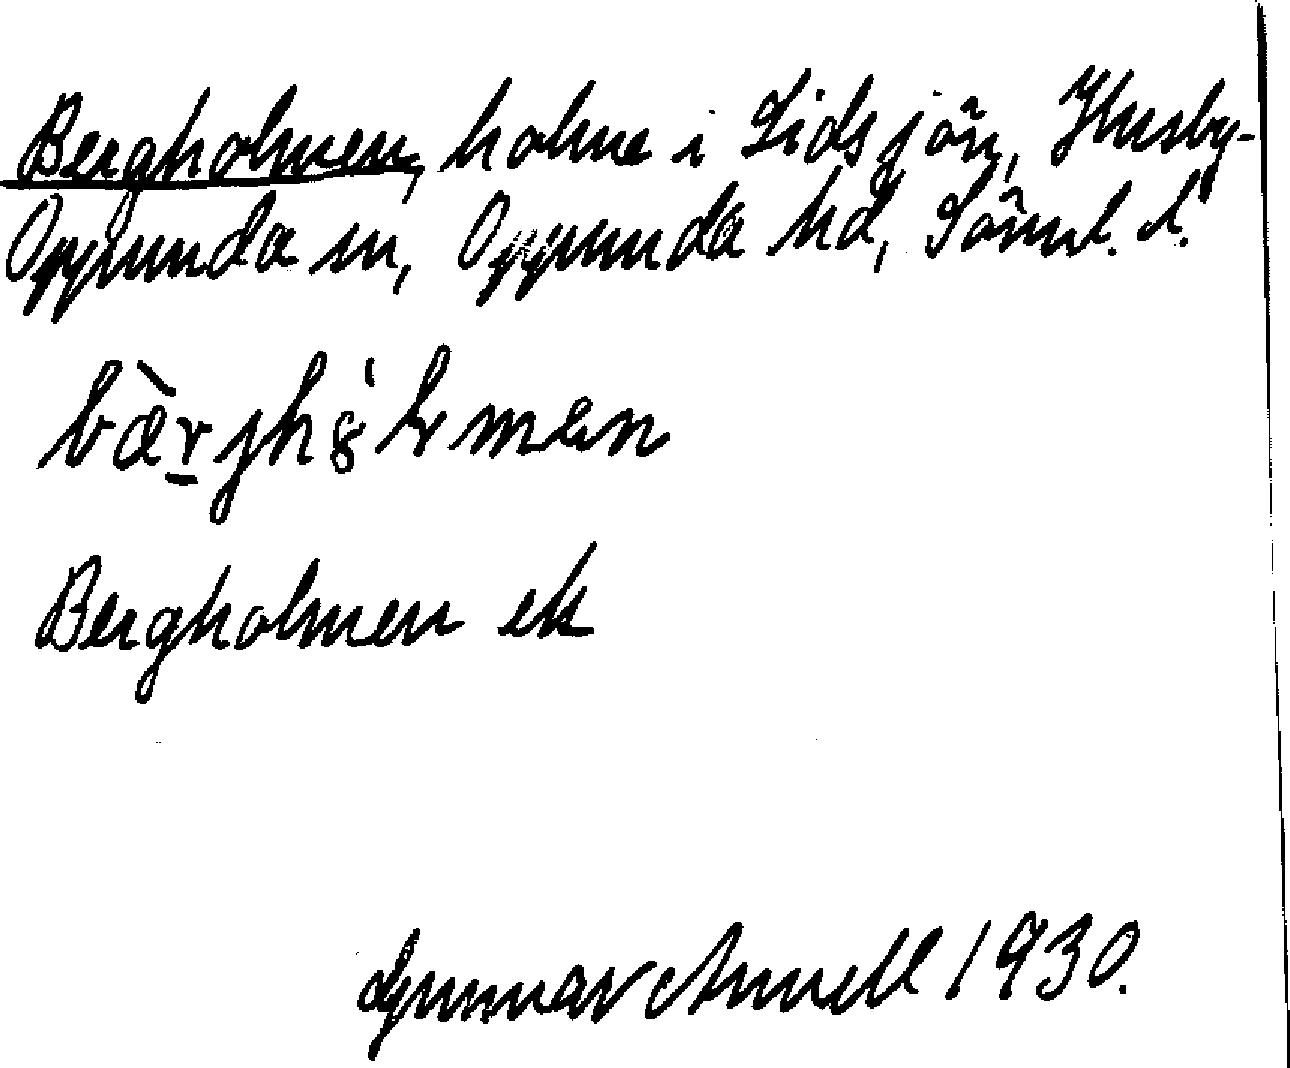 Bergholmen, holme i Lidsjön, Husby-
Oppunda sn, Oppunda hd, Söml. l.
bæ̀r̠jhȯlmen
Bergholmen ek
Gunnar Annell 1930.